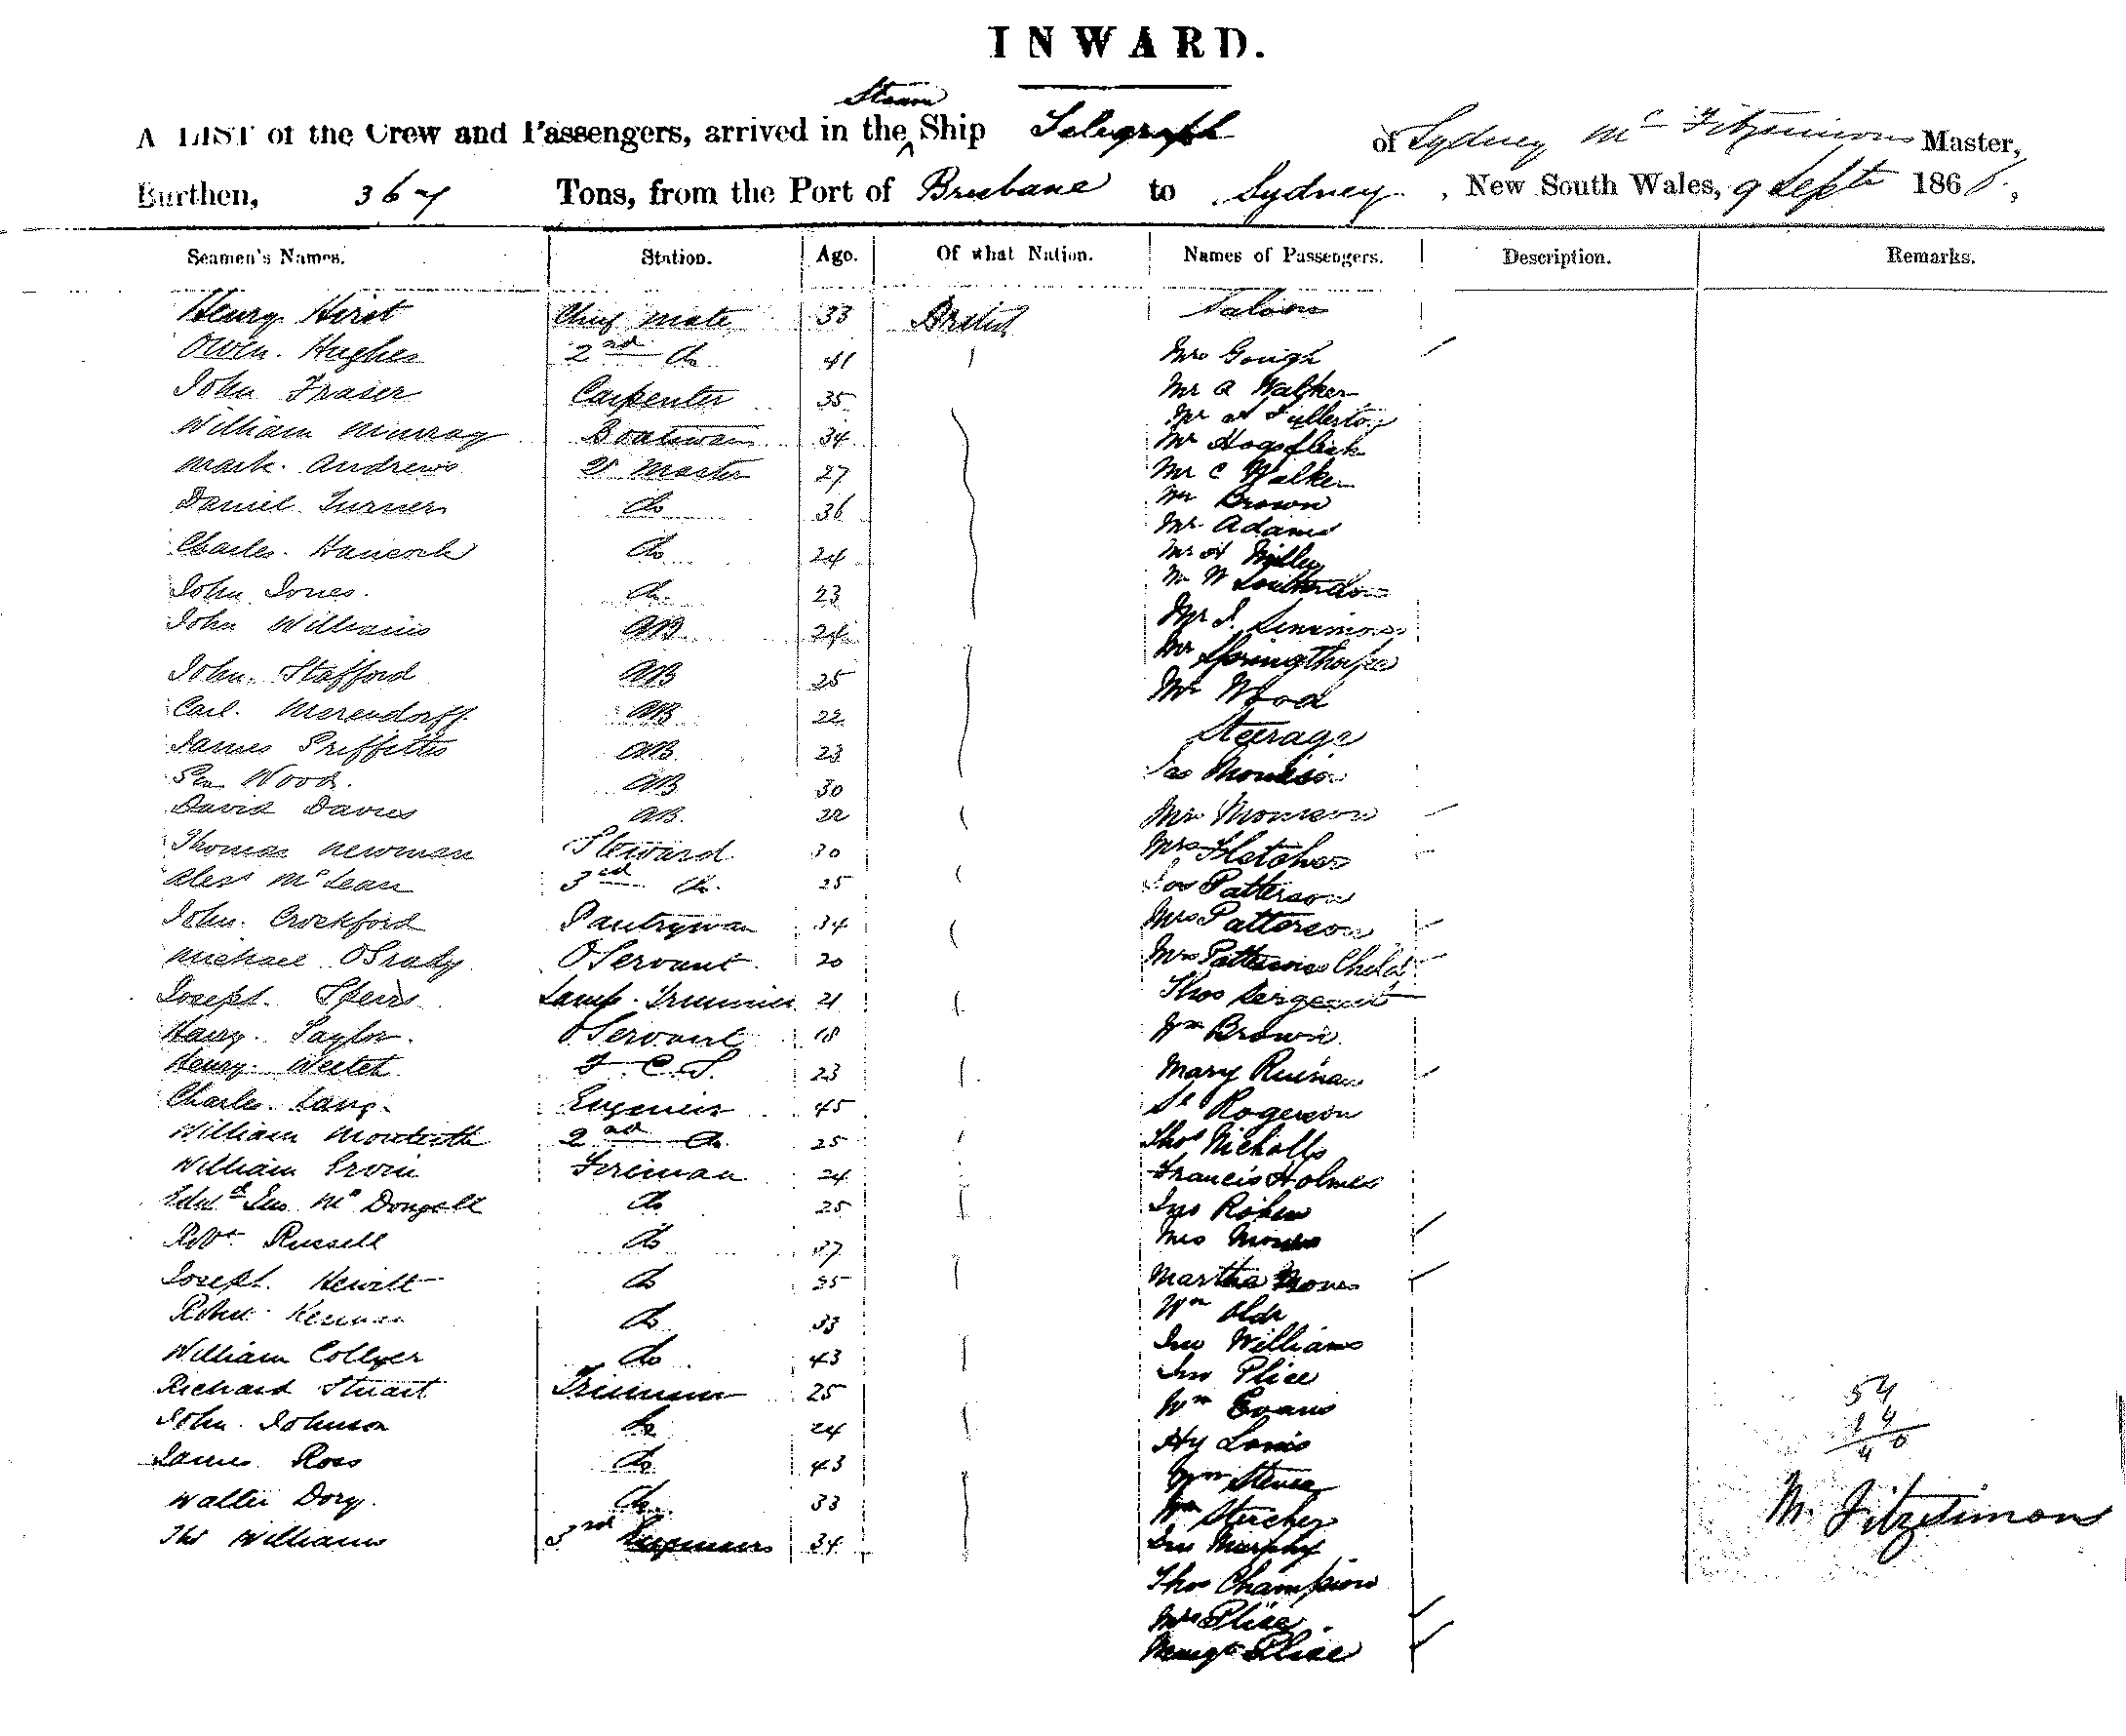 INWARD.
Steam
A LIST of the Crew and Passengers, arrived in the ^ Ship Telegraph of Sydney Mc Fitzsimons Master,
Burthen, 367 Tons, from the Port of Brisbane to Sydney , New South Wales, 9 Sept 186
Seamen's Names. Station. Age. Of what Nation. Names of Passengers. Description. Remarks.
Henry Hirst Chief Mate 33 British Saloon
Owen Hughes 2nd Do 41 Mrs Gough
John Fraser Carpenter 35 Mr A Walker
William Murray Boatswain 34 Mr Fullerton
Mark Andrews Qr Master 27 Mr Hogsflesh
Daniel Turner Do 36 Mr C Walker
Charles Hancock Do 24 Mr Brown
John Jones Do 23 Mr Adams
John Williams AB 24 Mr
John Stafford AB 25 Mr W
Carl Marendorff AB 22 Mr J. Simmons
James Griffiths AB 23 Mr Springthorpe
Wood AB 30 Mr Wood
David Davies AB 22 Steerage
Thomas Newman Steward 30 Jas Morrison
Alexr McLean 3rd Do 25 Mrs Morrison
John Crockford Pantryman 34 Mrs Fletcher
Michael OGrady O Servant 20 Jos Patterson
Joseph Speirs Lamp Trimmer 21 Mrs Patterson
Harry Taylor O Servant 18 Mrs Pattersons Child
Henry 23 Thos Sergeant
Charles Lang Engineer 45 Wm Brown
William Monteith 2nd Do 25 Mary
William Ervin Fireman 24 Rogerson
Edwd Jno McDougall Do 25 Thos Nicholls
Robt Russell Do 37 Francis Holmes
Joseph Hewitt Do 35 Jno
Robert Do 33 Mrs
William Collyer Do 43 Martha
Richard Stuart Trimmer 25 Wm
John Johnson Do 24 Jno Williams
James Ross Do 43 Jno Plice
Walter Dory Do 33 Wm Evans
Thos Williams 3rd Engineer 34 Hy Louis
Wm
Wm
Jno Murphy
Thos Champion
Mrs Plice
Margt Plice
54
14
40
M. Fitzsimons